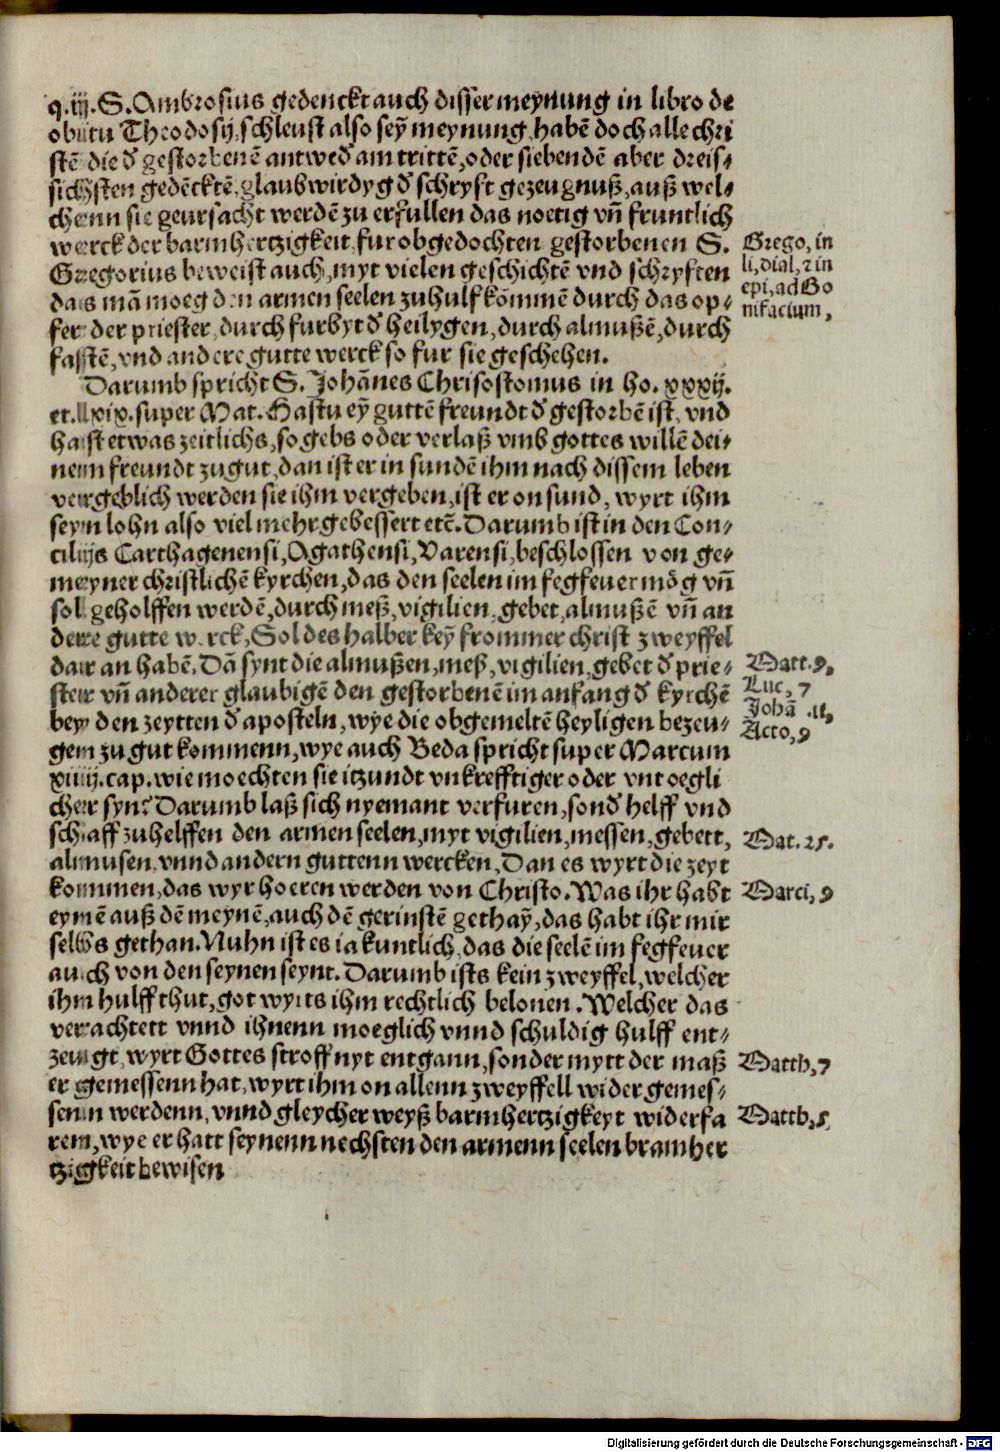 q.iij.S.Ambrosius gedenckt auch disser meynung in libro de
obitu Theodosij, schleust also sey̅ meynung, habe̅ doch alle chri
ste̅ die d̕ gestorbene̅ antwed̕ am tritte̅, oder siebende̅ aber dreis⸗
sichsten gede̅ckte̅, glaubwirdyg d̕ schryft gezeugnuß, auß wel⸗
chenn sie geursacht werde̅ zu erfullen das noetig vn̅ fruntlich
werck der barmhertzigkeit, fur obgedochten gestorbenen S.
Gregorius beweist auch, myt vielen geschichte̅ vnd schryften
das ma̅ moeg den armen seelen zuhulf ko̅mme̅ durch das op⸗
fer der priester, durch furbyt d̕ heilygen, durch almuße̅, durch
faste̅, vnd andere gutte werck so fur sie geschehen.
Darumb spricht S. Joha̅nes Chrisostomus in ho. xxxij.
et.lxix.super Mat. Hastu ey̅ gutte̅ freundt d̕ gestorbe̅ ist, vnd
hast etwas zeitlichs, so gebs oder verlaß vmb gottes wille̅ dei⸗
nem freundt zu gut, dan ist er in sunde̅ ihm nach dissem leben
vergeblich werden sie ihm vergeben, ist er on sund, wyrt ihm
seyn lohn also viel mehr gebessert etc̅. Darumb ist in den Con⸗
cilijs Carthagenensi, Agathensi, Varensi, beschlossen von ge⸗
meyner christliche̅ kyrchen, das den seelen im fegfeuer mo̊g vn̅
sol geholffen werde̅, durch meß, vigilien, gebet, almuße̅ vn̅ an
dere gutte werck, Sol des halber key̅ frommer christ zweyffel
dar an habe̅. Da̅ synt die almußen, meß, vigilien, gebet d̕ prie⸗
ster vn̅ anderer glaubige̅ den gestorbene̅ im anfang d̕ kyrche̅
bey den zeytten d̕ aposteln, wye die obgemelte̅ heyligen bezeu⸗
gem zu gut kommenn, wye auch Beda spricht super Marcum
xiiij. cap. wie moechten sie itzundt vnkrefftiger oder vntoegli
cher syn? Darumb laß sich nyemant verfuren, sond̕ helff vnd
schaff zuhelffen den armen seelen, myt vigilien, messen, gebett,
almusen, vnnd andern guttenn wercken, Dan es wyrt die zeyt
kommen, das wyr hoeren werden von Christo. Was ihr habt
eyme̅ auß de̅ meyne̅, auch de̅ gerinste̅ gethay̅, das habt ihr mir
selbs gethan. Nuhn ist es ia kuntlich, das die seele̅ im fegfeuer
auch von den seynen seynt. Darumb ists kein zweyffel, welcher
ihm hulff thut, got wyrts ihm rechtlich belonen. Welcher das
verachtett vnnd ihnenn moeglich vnnd schuldig hulff ent⸗
zeugt, wyrt Gottes stroff nyt entgann, sonder mytt der maß
er gemessenn hat, wyrt ihm on allenn zweyffell wider gemes⸗
senn werdenn, vnnd gleycher weyß barmhertzigkeyt widerfa
rem, wye er hatt seynenn nechsten den armenn seelen bramher
tzigkeit bewisen
Grego, in
li, dial, ꝛ in
epi, ad Bo
nifacium,
Matt. 9,
Luc, 7
Joha̅ .11,
Acto, 9
Mat. 25.
Marci, 9
Matth, 7
Matth, 5,
Digitalisierung gefördert durch die Deutsche Forschungsgemeinschaft - DFG